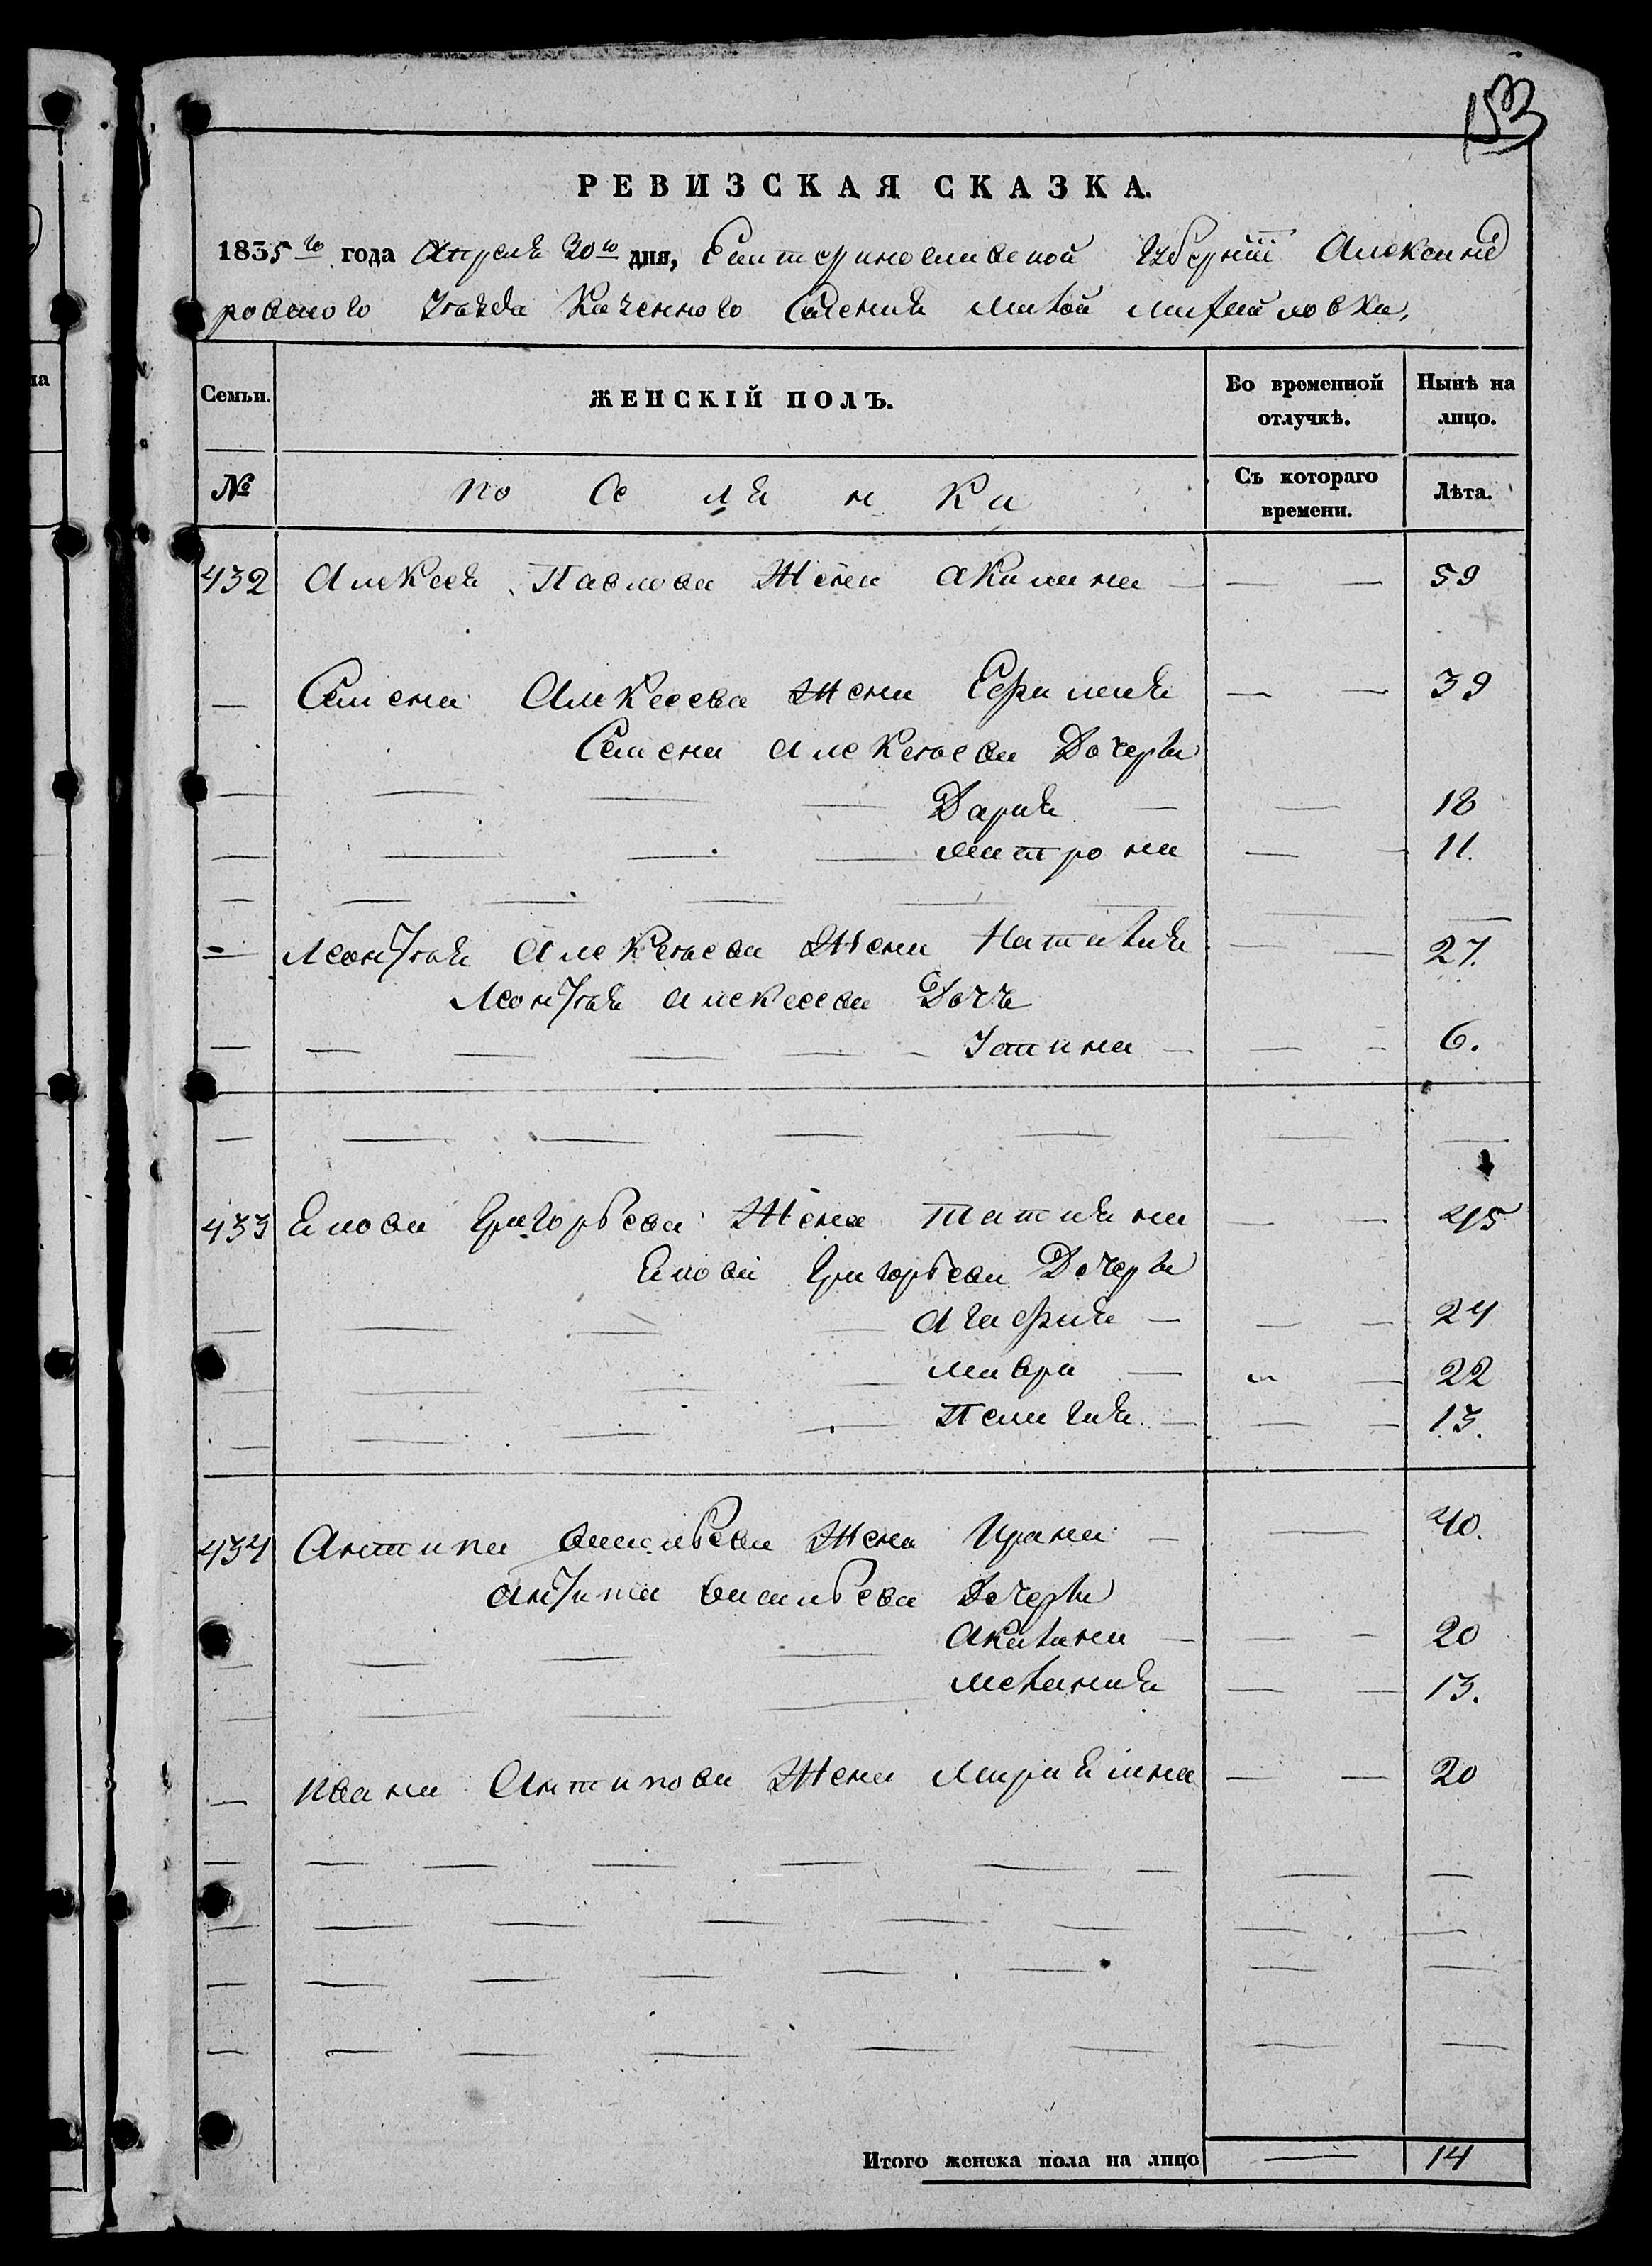 153
РЕВИЗСКАЯ СКАЗКА.
1835го года Апреля 30го дня, Екатеринославской Губернiи Александ
ровского Уезда Казенного Селения Малой Михайловки,
Семьи. ЖЕНСКІЙ ПОЛЪ. Во временной отлучкѣ. Нынѣ на лицо.
№ по се ля н ка Съ котораго времени. Лѣта.
432 Алексея Павлова Жена Акилина — — — 59
— Семена Алексеева жена Ефимия — — 39
Семена Алексеева Дочери
— — — — Дария — — 18
— — — — Матрона — — 11.
— Леонтъя Алексеева Жена Наталия — — 27.
Леонтъя Алексеева Дочь
— — — — — — Устина — — — 6.
433 Якова Григорьева Жена Татияна — — 45
Якова Григорьева Дочери
— — — — Агафия — — — 24
— — — — Мавра — — 22
— — — — Пелагия — — — 13.
434 Антипа Васильева Жена Ирина — — 40.
Антипа Васильева Дочери
— — — — Акилина — — — 20
— — — — Мелания — — 13.
— Ивана Антипова Жена Мариямна — — 20
Итого женска пола на лицо — 14